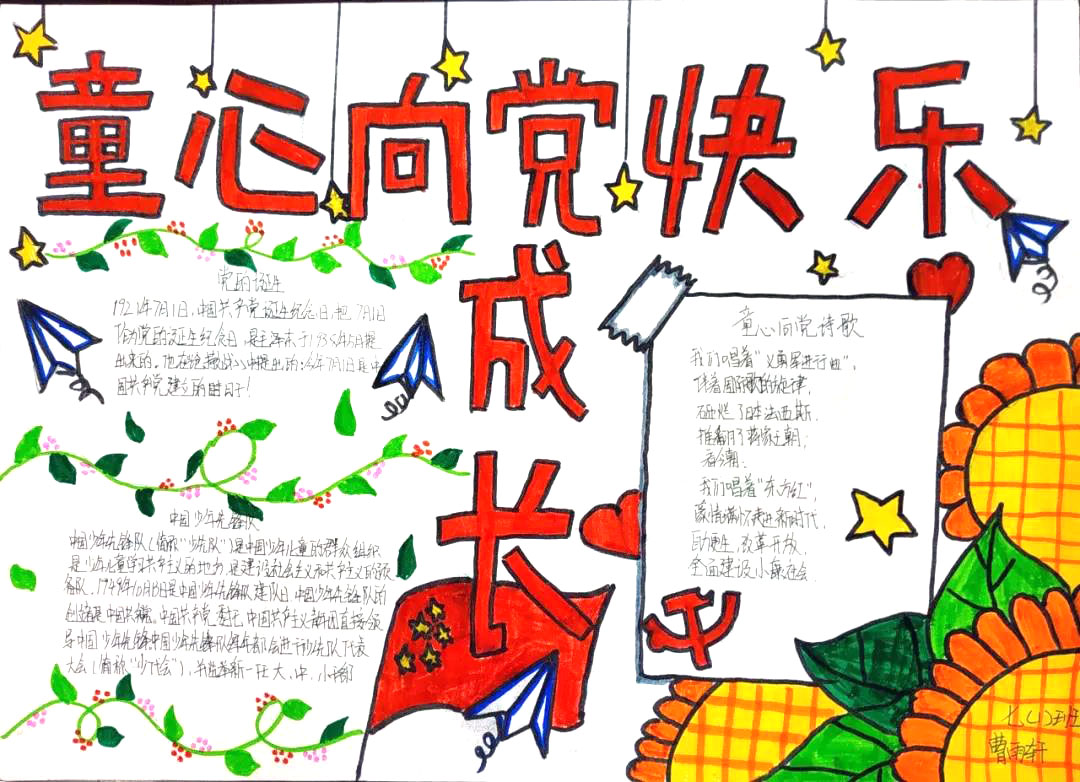 童心向党快乐
成
长
党的诞生
1921年7月1日,中国共产党诞生纪念日,把7月1日
作为党的诞生纪念日,是毛泽东于1938年5月提
出来的。他在论持久战中提出的:今年7月1日是中
国共产党建立的时日子!
中国少年先锋队
中国少年先锋队(简称“少先队”)是中国少年儿童的群众组织
是少年儿童学习共产主义的地方,是建设社会主义和共产主义的预
备队.1949年10月13日是中国少年先锋队建队日.中国少年先锋队的
创立者是中国共产党.中国共产党委托.中国共产主义青年团直接领
导中国少年先锋队中国少年先锋队每年都会进行少先队代表
大会(简称“少代会”),并选举新一任大、中、小干部
童心向党诗歌
我们唱着“义勇军进行曲”,
伴着国际歌的旋律,
砸烂了日本法西斯.
推翻了蒋家王朝;
看今朝:
我们唱着“东方红”,
豪情满怀走进新时代,
自力更生,改革开放,
全面建设小康社会.
七(1)班
曹雨轩